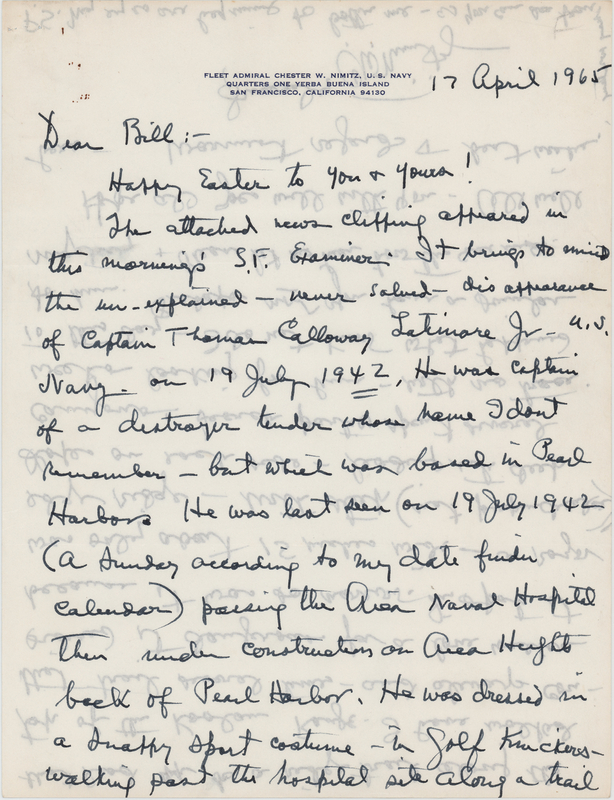 FLEET ADMIRAL CHESTER W. NIMITZ, U. S. NAVY
QUARTERS ONE YERBA BUENA ISLAND
SAN FRANCISCO, CALIFORNIA 94130
17 April 1965
Dear Bill:-
Happy Easter to you & yours!
The attached news clipping appeared in
this morning's S.F. Examiner. It brings to mind
the un-explained - never solved - disappearance
of Captain Thomas Calloway Latimore Jr - U.S.
Navy - on 19 July 1942, He was captain
of a destroyer tender whose name I dont
remember - but which was based in Pearl
Harbor. He was last seen on 19 July 1942
(a Sunday according to my date finder
calendar) passing the Aiea Naval Hospital
then under construction on Aiea Heights
back of Pearl Harbor. He was dressed in
a snappy sport costume - in Golf Knickers -
walking past the hospital site along a trail